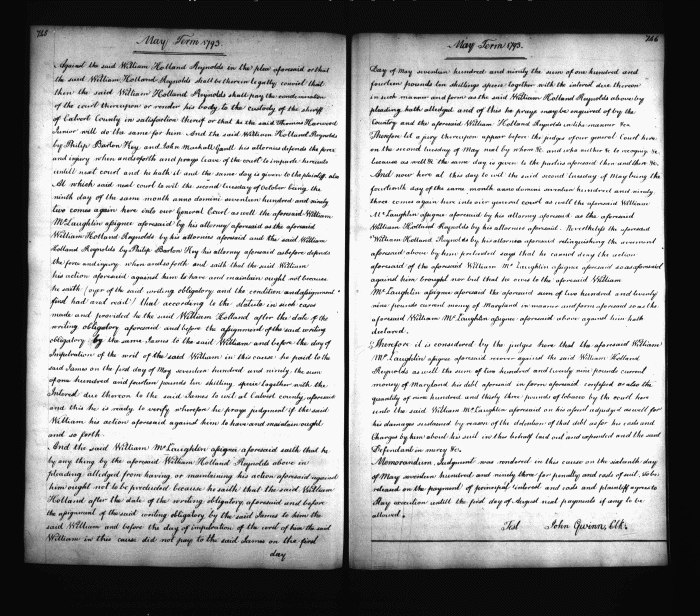 725
May Term 1793.
Against the said William Holland Reynolds in the plea aforesaid or that
the said William Holland Reynolds shall be therein legally convict that
then the said William Holland Reynolds shall pay the condemnation
of the court thereupon or render his body to the custody of the sheriff
of Calvert County in satisfaction thereof or that he the said Thomas Harwood
Junior will do the same for him And the said William Holland Reynolds
by Philip Barton Key and John Marshall Gantt his attornies defends the force
and injury when and so forth and prays leave of the court to imparle hereunto
untill next court and he hath it and the same day is given to the plaintiff also
At which said next court to wit the second tuesday of October being the
ninth day of the same month anno domini seventeen hundred and ninety
two comes again here into our General Court as well the aforesaid William
McLaughlin assignee aforesaid by his attorney aforesaid as the aforesaid
William Holland Reynolds by his attornies aforesaid and the said William
Holland Reynolds by Philip Barton Key his attorney aforesaid as before defends
the force and injury when and so forth and saith that the said William
his action aforesaid against him to have and maintain ought not because
he saith (oyer of the said writing obligatory and the condition and assignment
first had and read) that according to the statute in such cases
made and provided he the said William Holland after the date of the
writing obligatory aforesaid and before the assignment of the said writing
obligatory by the same James to the said William and before the day of
Impetration of the writ of the said William in this cause he paid to the
said James on the first day of May seventeen hundred and ninety the sum
of one hundred and fourteen pounds ten shilling specie together with the
Interest due thereon to the said James to wit at Calvert county aforesaid
and this he is ready to verify wherefore he prays judgment if the said
William his action aforesaid against him to have and maintain ought
and so forth.
And the said William McLaughlin assignee aforesaid saith that he
by any thing by the aforesaid William Holland Reynolds above in
pleading alledged from having or maintaining his action aforesaid against
him ought not to be precluded because he saith that the said William
Holland after the date of the writing obligatory aforesaid and before
the assignment of the said writing obligatory by the said James to him the
said William and before the day of impetration of the writ of him the said
William in this cause did not pay to the said James on the first
day
726
May Term 1793.
Day of May seventeen hundred and ninety the sum of one hundred and
fourteen pounds ten shillings specie together with the interest due thereon
in such manner and form as the said William Holland Reynolds above by
pleading hath alledged and of this he prays may be enquired of by the
Country and the aforesaid William Holland Reynolds in like manner &c
Therefore let a jury thereupon appear before the judges of our general Court here
on the second tuesday of May next by whom &c and who neither &c to recognize &c
because as well &c the same day is given to the parties aforesaid then and there &c.
And now here at this day to wit the second tuesday of May being the
fourteenth day of the same month anno domini seventeen hundred and ninety
three comes again here into our general court as well the aforesaid William
McLaughlin assignee aforesaid by his attorney aforesaid as the aforesaid
William Holland Reynolds by his attornies aforesaid. Nevertheless the aforesaid
William Holland Reynolds by his attornies aforesaid relinquishing the averment
aforesaid above by him pretended says that he cannot deny the action
aforesaid of the aforesaid William McLaughlin assignee aforesaid so as aforesaid
against him brought nor but that he owes to the aforesaid William
McLaughlin assignee aforesaid the aforesaid sum of two hundred and twenty
nine pounds current money of Maryland in manner and form aforesaid as the
aforesaid William McLaughlin assignee aforesaid above against him hath
declared.
Therefore it is considered by the judges here that the aforesaid William
McLaughlin assignee aforesaid recover against the said William Holland
Reynolds as well the sum of two hundred and twenty nine pounds current
money of Maryland his debt aforesaid in form aforesaid confessed as also the
quantity of nine hundred and thirty three pounds of tobacco by the court here
unto the said William McLaughlin aforesaid on his assent adjudged as well for
his damages sustained by reason of the detention of that debt as for his costs and
Charges by him about his suit in this behalf laid out and expended and the said
Defendant in mercy &c.
Memorandum Judgment was rendered in this cause on the sixteenth day
of May seventeen hundred and ninety three for penalty and costs of suit, to be
released on the payment of principal interest and costs and plaintiff agrees to
stay execution untill the first day of August next payments if any to be
allowed.
Test John Gwinn, Clk.